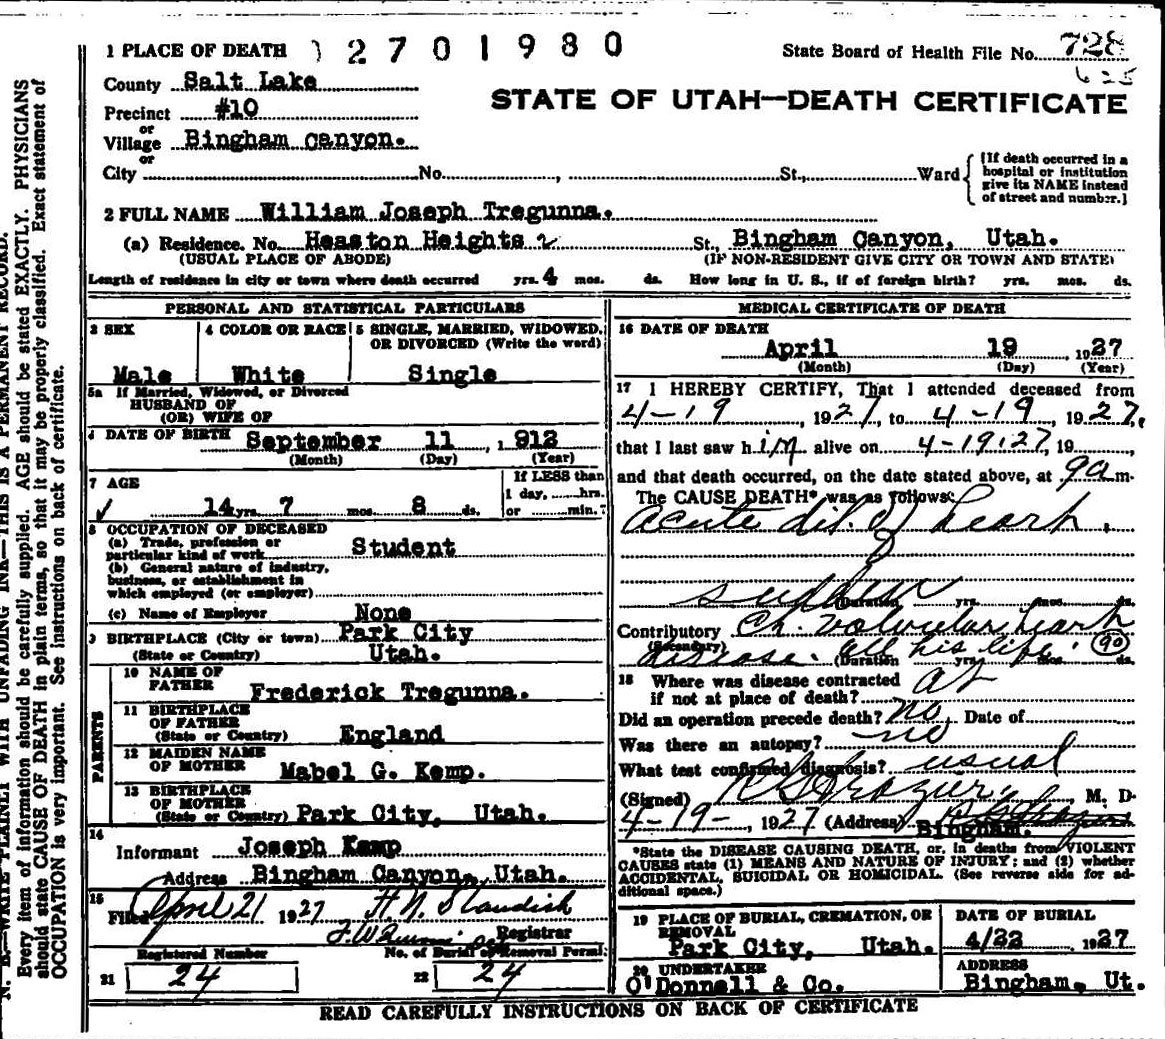 1 PLACE OF DEATH 2 7 0 1 9 8 0 State Board of Health File No. 728
625
County Salt Lake
STATE OF UTAH—DEATH CERTIFICATE
Precinct #10
or
Village Bingham Canyon.
or
City No. , St., Ward
[If death occurred in a
hospital or institution
give its NAME instead
of street and number.]
2 FULL NAME William Joseph Tregunna.
(a) Residence. No. Heaston Heights St., Bingham Canyon, Utah.
(USUAL PLACE OF ABODE) (IF NON-RESIDENT GIVE CITY OR TOWN AND STATE)
Length of residence in city or town where death occurred yrs. 4 mos. ds. How long in U. S., if of foreign birth? yrs. mos. ds.
PERSONAL AND STATISTICAL PARTICULARS
3 SEX
Male
4 COLOR OR RACE
White
5 SINGLE, MARRIED, WIDOWED,
OR DIVORCED (Write the word)
Single
5a If Married, Widowed, or Divorced
HUSBAND OF
(OR) WIFE OF
DATE OF BIRTH September 11 , 1912
(Month) (Day) (Year)
7 AGE
14 yrs. 7 mos. 8 ds.
If LESS than
1 day, hrs.
or min.?
8 OCCUPATION OF DECEASED
(a) Trade, profession or
particular kind of work Student
(b) General nature of industry,
business, or establishment in
which employed (or employer)
(c) Name of Employer None
9 BIRTHPLACE (City or town) Park City
(State or Country) Utah.
PARENTS
10 NAME OF
FATHER Frederick Tregunna.
11 BIRTHPLACE
OF FATHER
(State or Country) England
12 MAIDEN NAME
OF MOTHER Mabel G. Kemp.
13 BIRTHPLACE
OF MOTHER
(State or Country) Park City, Utah.
14
Informant Joseph Kemp
Address Bingham Canyon, Utah.
15
Filed April 21 1927 H. N. Standish
Registrar
Registered Number No. of Burial or Removal Permit
21 24 22 24
MEDICAL CERTIFICATE OF DEATH
16 DATE OF DEATH
April 19 , 1927
(Month) (Day) (Year)
17 I HEREBY CERTIFY, That I attended deceased from
4-19 , 1927, to 4-19 , 1927,
that I last saw him alive on 4-19-27, 19
and that death occurred, on the date stated above, at 9a m.
The CAUSE DEATH* was as follows:
Acute dil. of heart.
sudden
(Duration yrs. mos. ds.
Contributory Ch. valvular heart
(Secondary) disease. all his life. 90
(Duration yrs. mos. ds.
18 Where was disease contracted
if not at place of death? at
Did an operation precede death? no Date of
Was there an autopsy? no
What test confirmed diagnosis? usual
(Signed) M. D.
4-19-, 1927 (Address)
Bingham.
*State the DISEASE CAUSING DEATH, or, in deaths from VIOLENT
CAUSES state (1) MEANS AND NATURE OF INJURY; and (2) whether
ACCIDENTAL, SUICIDAL OR HOMICIDAL. (See reverse side for ad-
ditional space.)
19 PLACE OF BURIAL, CREMATION, OR
REMOVAL
Park City, Utah.
DATE OF BURIAL
4/22 , 1927
20 UNDERTAKER
O'Donnell & Co.
ADDRESS
Bingham, Ut.
READ CAREFULLY INSTRUCTIONS ON BACK OF CERTIFICATE
N. B.—WRITE PLAINLY WITH UNFADING INK—THIS IS A PERMANENT RECORD.
Every item of information should be carefully supplied. AGE should be stated EXACTLY. PHYSICIANS
should state CAUSE OF DEATH in plain terms, so that it may be properly classified. Exact statement of
OCCUPATION is very important. See instructions on back of certificate.